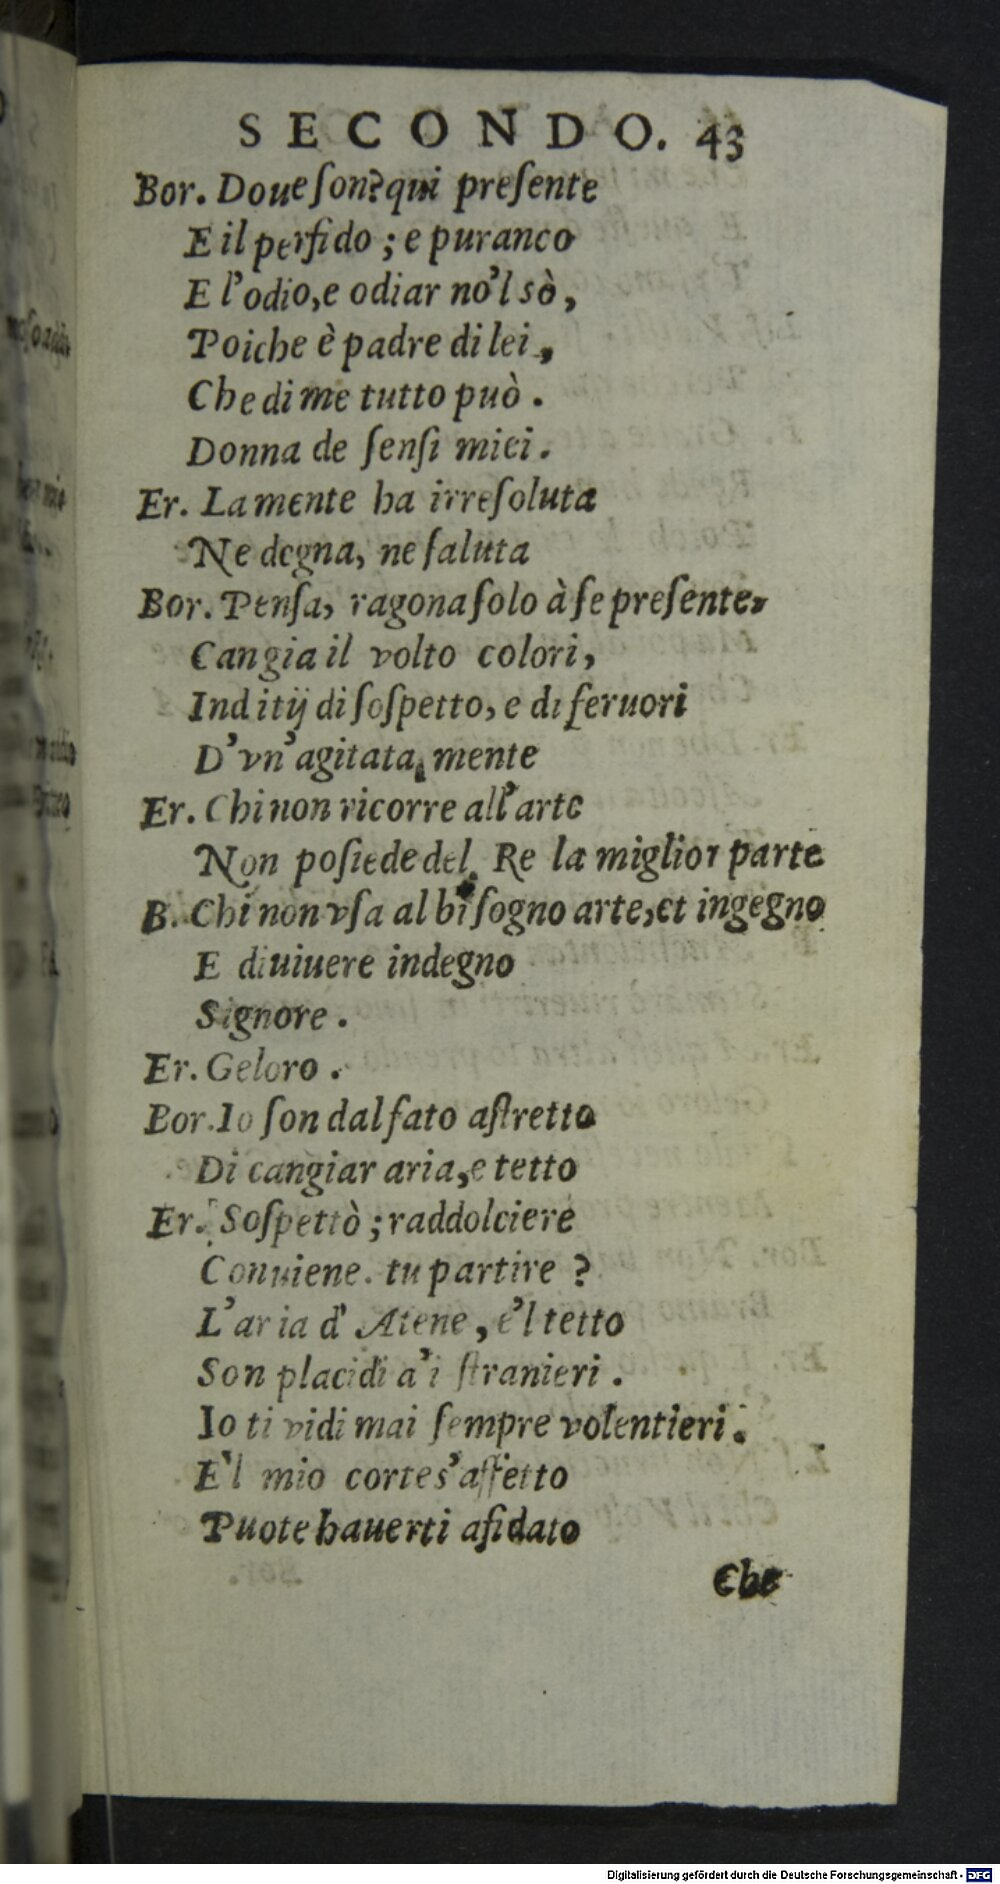 SECONDO. 43
Bor. Doue ſon? qui preſente
E il perfido ; e puranco
E l'odio, e odiar no'l sò ,
Poiche è padre di lei ,
Che di me tutto può .
Donna de ſenſi miei .
Er. La mente ha irreſoluta
Ne degna, ne ſaluta
Bor. Penſa, ragona ſolo à ſe preſente,
Cangia il volto colori ,
Inditij di ſoſpetto, e di feruori
D'vn' agitata mente
Er. Chi non ricorre all'arte
Non poſiede del Re la miglior parte
B. Chi non vſa al biſogno arte, et ingegno
E di viuere indegno
Signore .
Er. Geloro .
Bor. Io ſon dal fato aſtretto
Di cangiar aria, e tetto
Er. Soſpettò ; raddolciere
Conuiene. tu partire ?
L'aria d' Atene , e'l tetto
Son placidi a'i ſtranieri .
Io ti vidi mai ſempre volentieri .
E'l mio cortes' affetto
Puote hauerti afidato
Che
Digitalisierung gefördert durch die Deutsche Forschungsgemeinschaft - DFG